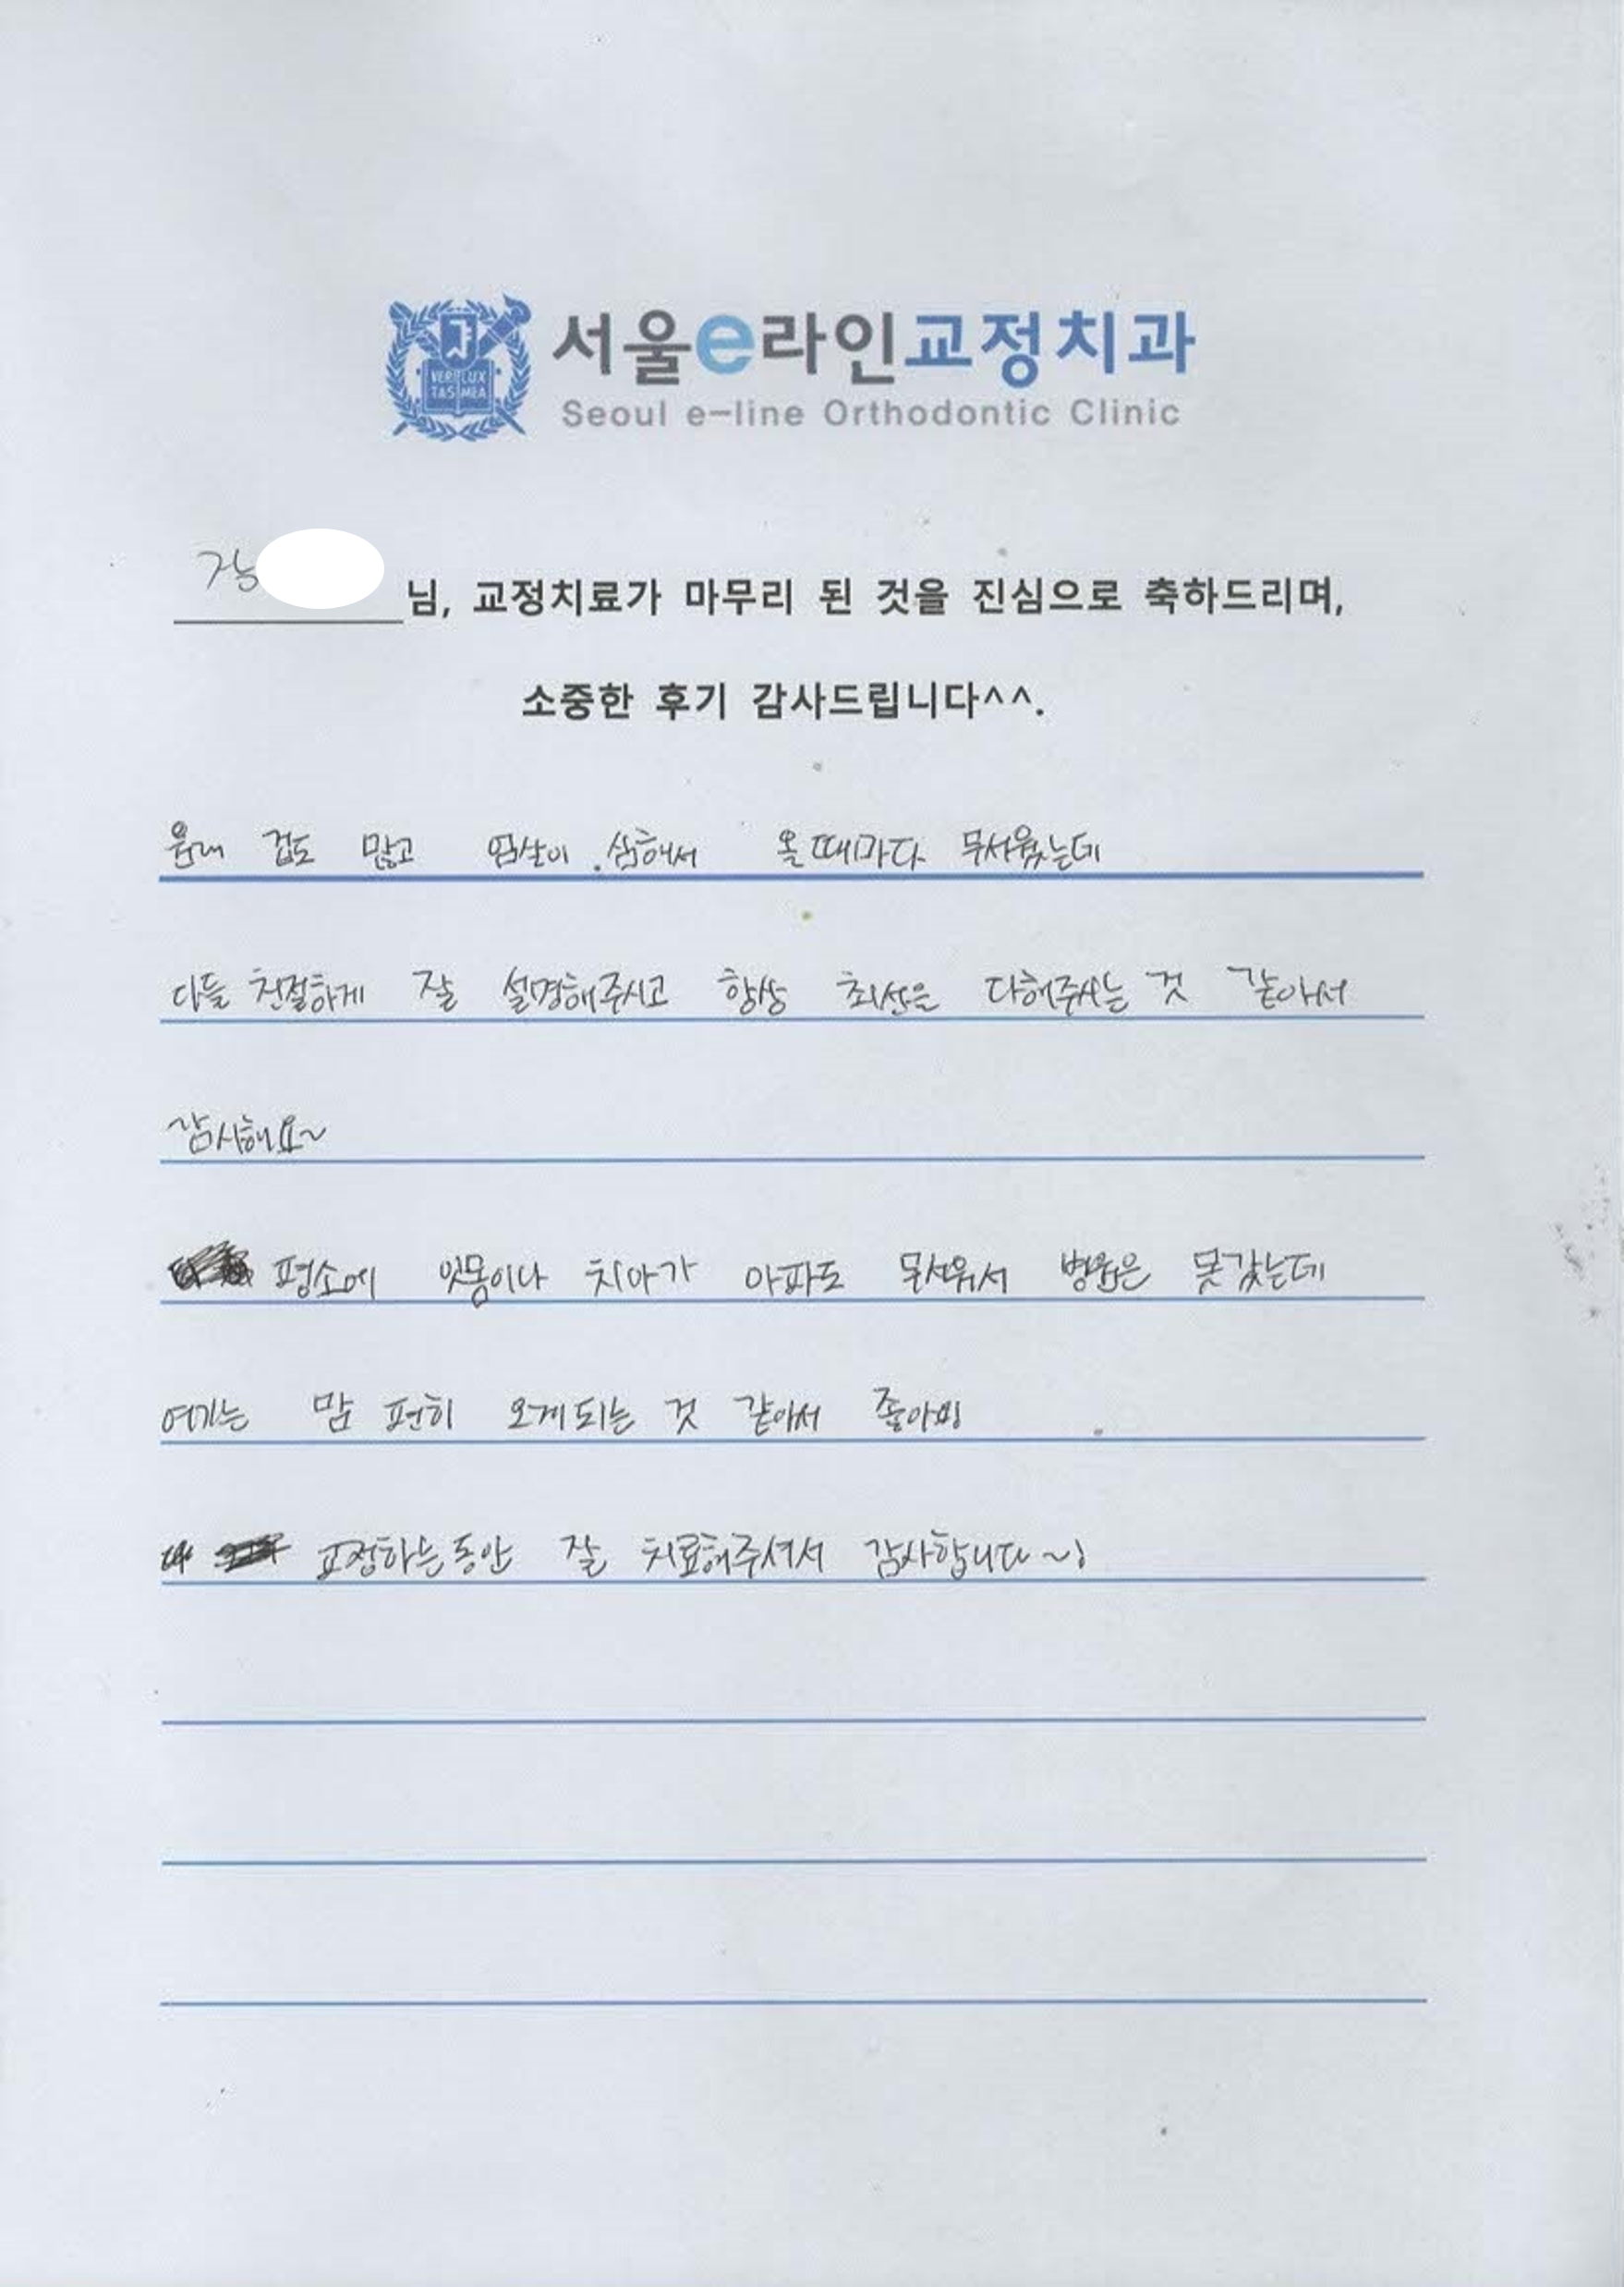 VERI LUX
TAS MEA
서울e라인교정치과
Seoul e-line Orthodontic Clinic
강
님, 교정치료가 마무리 된 것을 진심으로 축하드리며,
소중한 후기 감사드립니다^^.
원래 겁도 많고 엄살이 심해서 올때마다 무서웠는데
다들 친절하게 잘 설명해주시고 항상 최선을 다해주시는 것 같아서
감사해요~
평소에 잇몸이나 치아가 아파도 무서워서 병원은 못갔는데
여기는 맘 편히 오게되는 것 같아서 좋아요
교정하는동안 잘 치료해주셔서 감사합니다~!